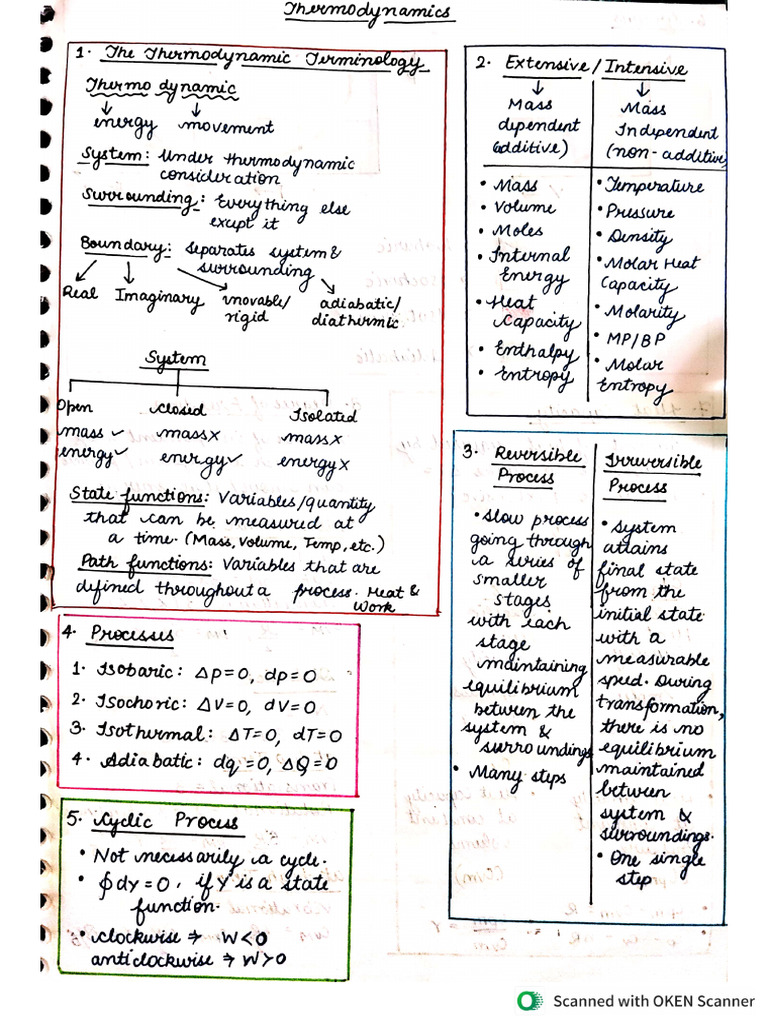 Thermodynamics
1. The Thermodynamic Terminology
Thermo dynamic
↓ ↓
energy movement
System: Under thermodynamic
consideration
Surrounding: Everything else
except it
Boundary: separates system &
surrounding
Real Imaginary movable/ adiabatic/
rigid diathermic
System
Open closed Isolated
mass ✓ mass x mass x
energy ✓ energy ✓ energy x
State functions: Variables/quantity
that can be measured at
a time. (Mass, Volume, Temp, etc.)
Path functions: Variables that are
defined throughout a process. Heat &
Work
2. Extensive / Intensive
↓ ↓
Mass Mass
dependent Independent
(additive) (non-additive)
• Mass • Temperature
• Volume • Pressure
• Moles • Density
• Internal • Molar Heat
Energy Capacity
• Heat • Molarity
Capacity • MP/BP
• Enthalpy • Molar
• Entropy Entropy
3. Reversible
Process
• Slow process
going through
a series of
smaller
stages
with each
stage
maintaining
equilibrium
between the
system &
surroundings
• Many steps
Irreversible
Process
• System
attains
final state
from the
initial state
with a
measurable
speed. During
transformation,
there is no
equilibrium
maintained
between
system &
surroundings.
• One single
step
4. Processes
1. Isobaric: ΔP=0, dp=0
2. Isochoric: ΔV=0, dV=0
3. Isothermal: ΔT=0, dT=0
4. Adiabatic: dq=0, ΔQ=0
5. Cyclic Process
• Not necessarily a cycle.
• ∮dY=0, if Y is a state
function.
• clockwise ⇒ W<0
anticlockwise ⇒ W>0
Scanned with OKEN Scanner